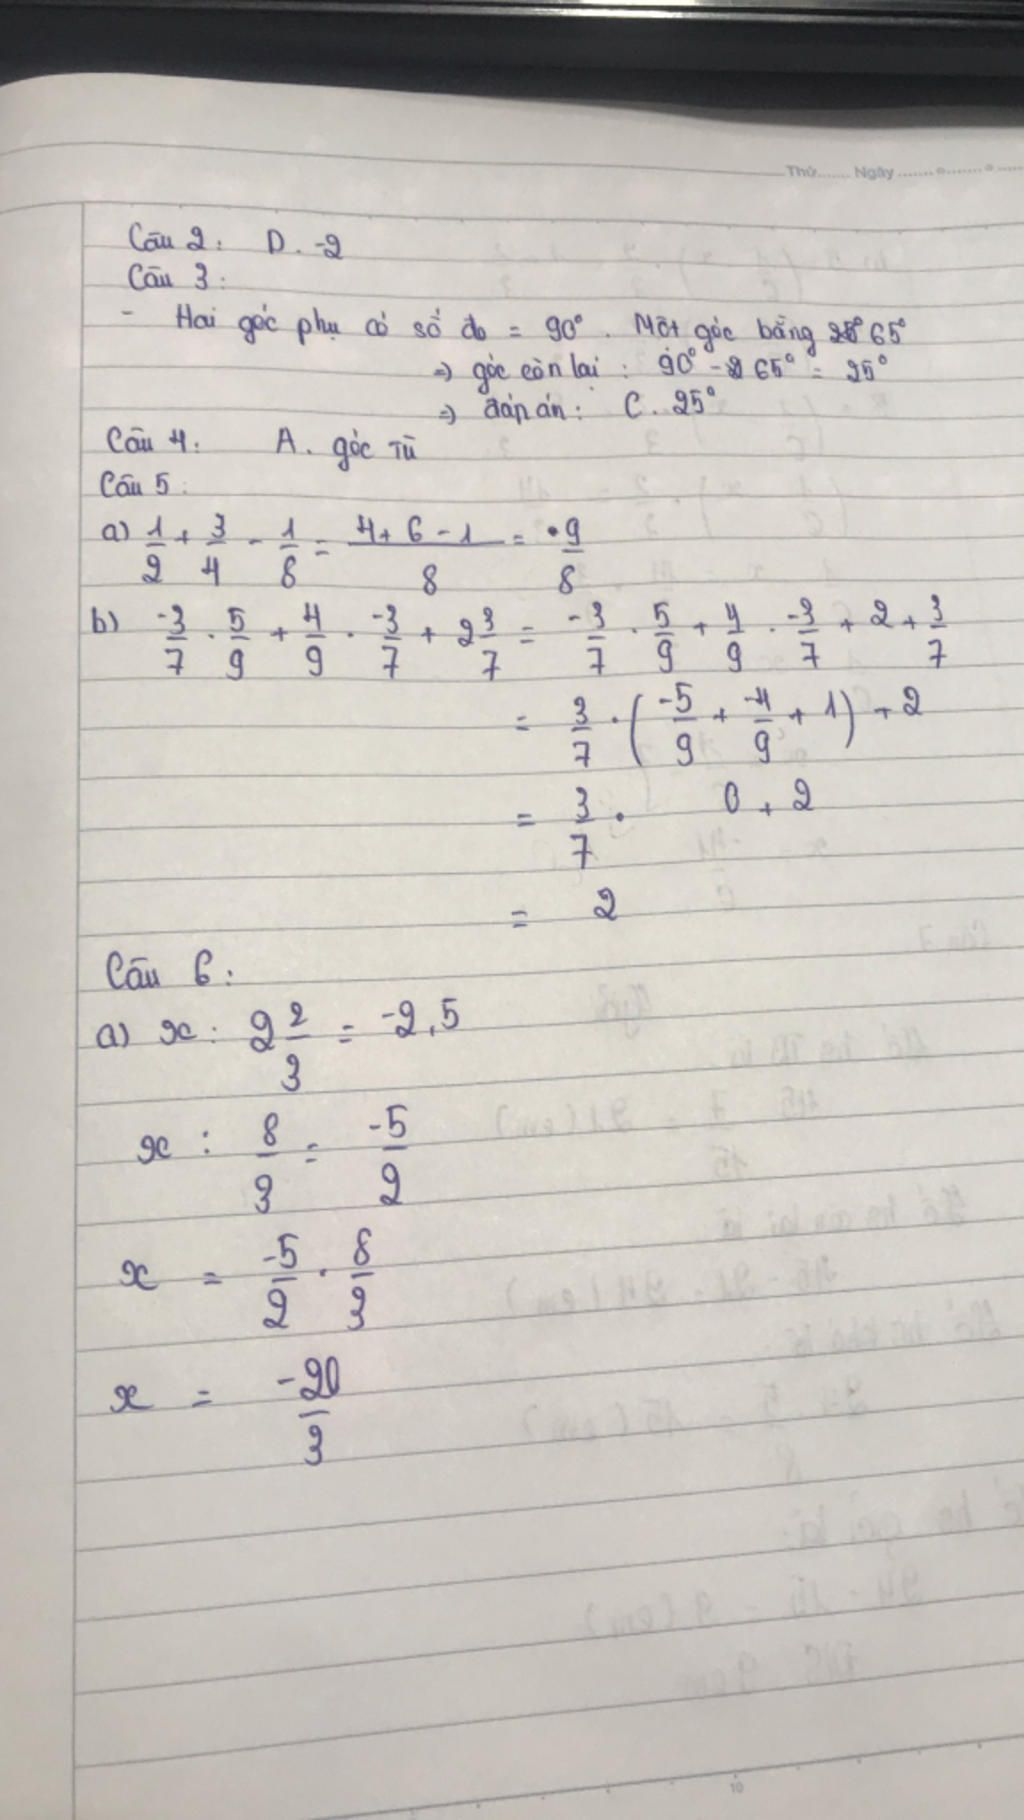 Thứ....... Ngày
Câu 2: D. -2
Câu 3:
- Hai góc phụ có số đo = 90°. Một góc bằng 65°
=> góc còn lại : 90° - 65° = 25°
=> đáp án: C. 25°
Câu 4: A. góc Tù
Câu 5:
a) 1/2 + 3/4 - 1/8 = (4+6-1)/8 = 9/8
b) -3/7 . 5/9 + 4/9 . -3/7 + 2 3/7 = -3/7 . 5/9 + 4/9 . -3/7 + 2 + 3/7
= 3/7 . (-5/9 + -4/9 + 1) + 2
= 3/7 . 0 + 2
= 2
Câu 6:
a) x : 2 2/3 = -2,5
x : 8/3 = -5/2
x = -5/2 . 8/3
x = -20/3
10